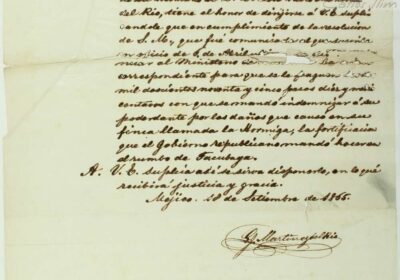 del Rio, tiene el honor de dirijirse á V. E. supli
candole que en cumplimiento de la resolucion
de S. M., que fué comunicada al que suscribe
en oficio de 6 de Abril
nunciar al Ministerio
correspondiente para que se le paguen
mil doscientos noventa y cinco pesos diez y nueve
centavos con que se mandó indemnizar á su
poderdante por los daños que causó en su
finca llamada la Hormiga, la fortificacion
que el Gobierno republicano mandó hacer en
el rumbo de Tacubaya.
A. V. E. suplica asi se sirva disponerlo, en lo qué
recibirá justicia y gracia.
Méjico. 18 de Setiembre de 1865.
G. Martinez del Rio